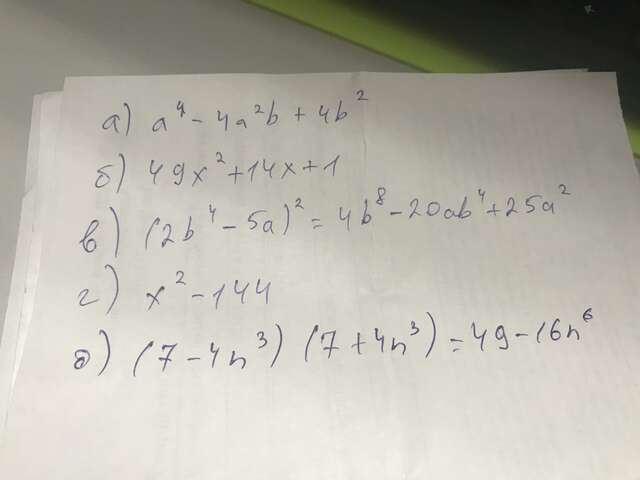 а) a⁴ - 4a²b + 4b²
б) 49x² + 14x + 1
в) (2b⁴ - 5a)² = 4b⁸ - 20ab⁴ + 25a²
г) x² - 144
д) (7 - 4n³) (7 + 4n³) = 49 - 16n⁶